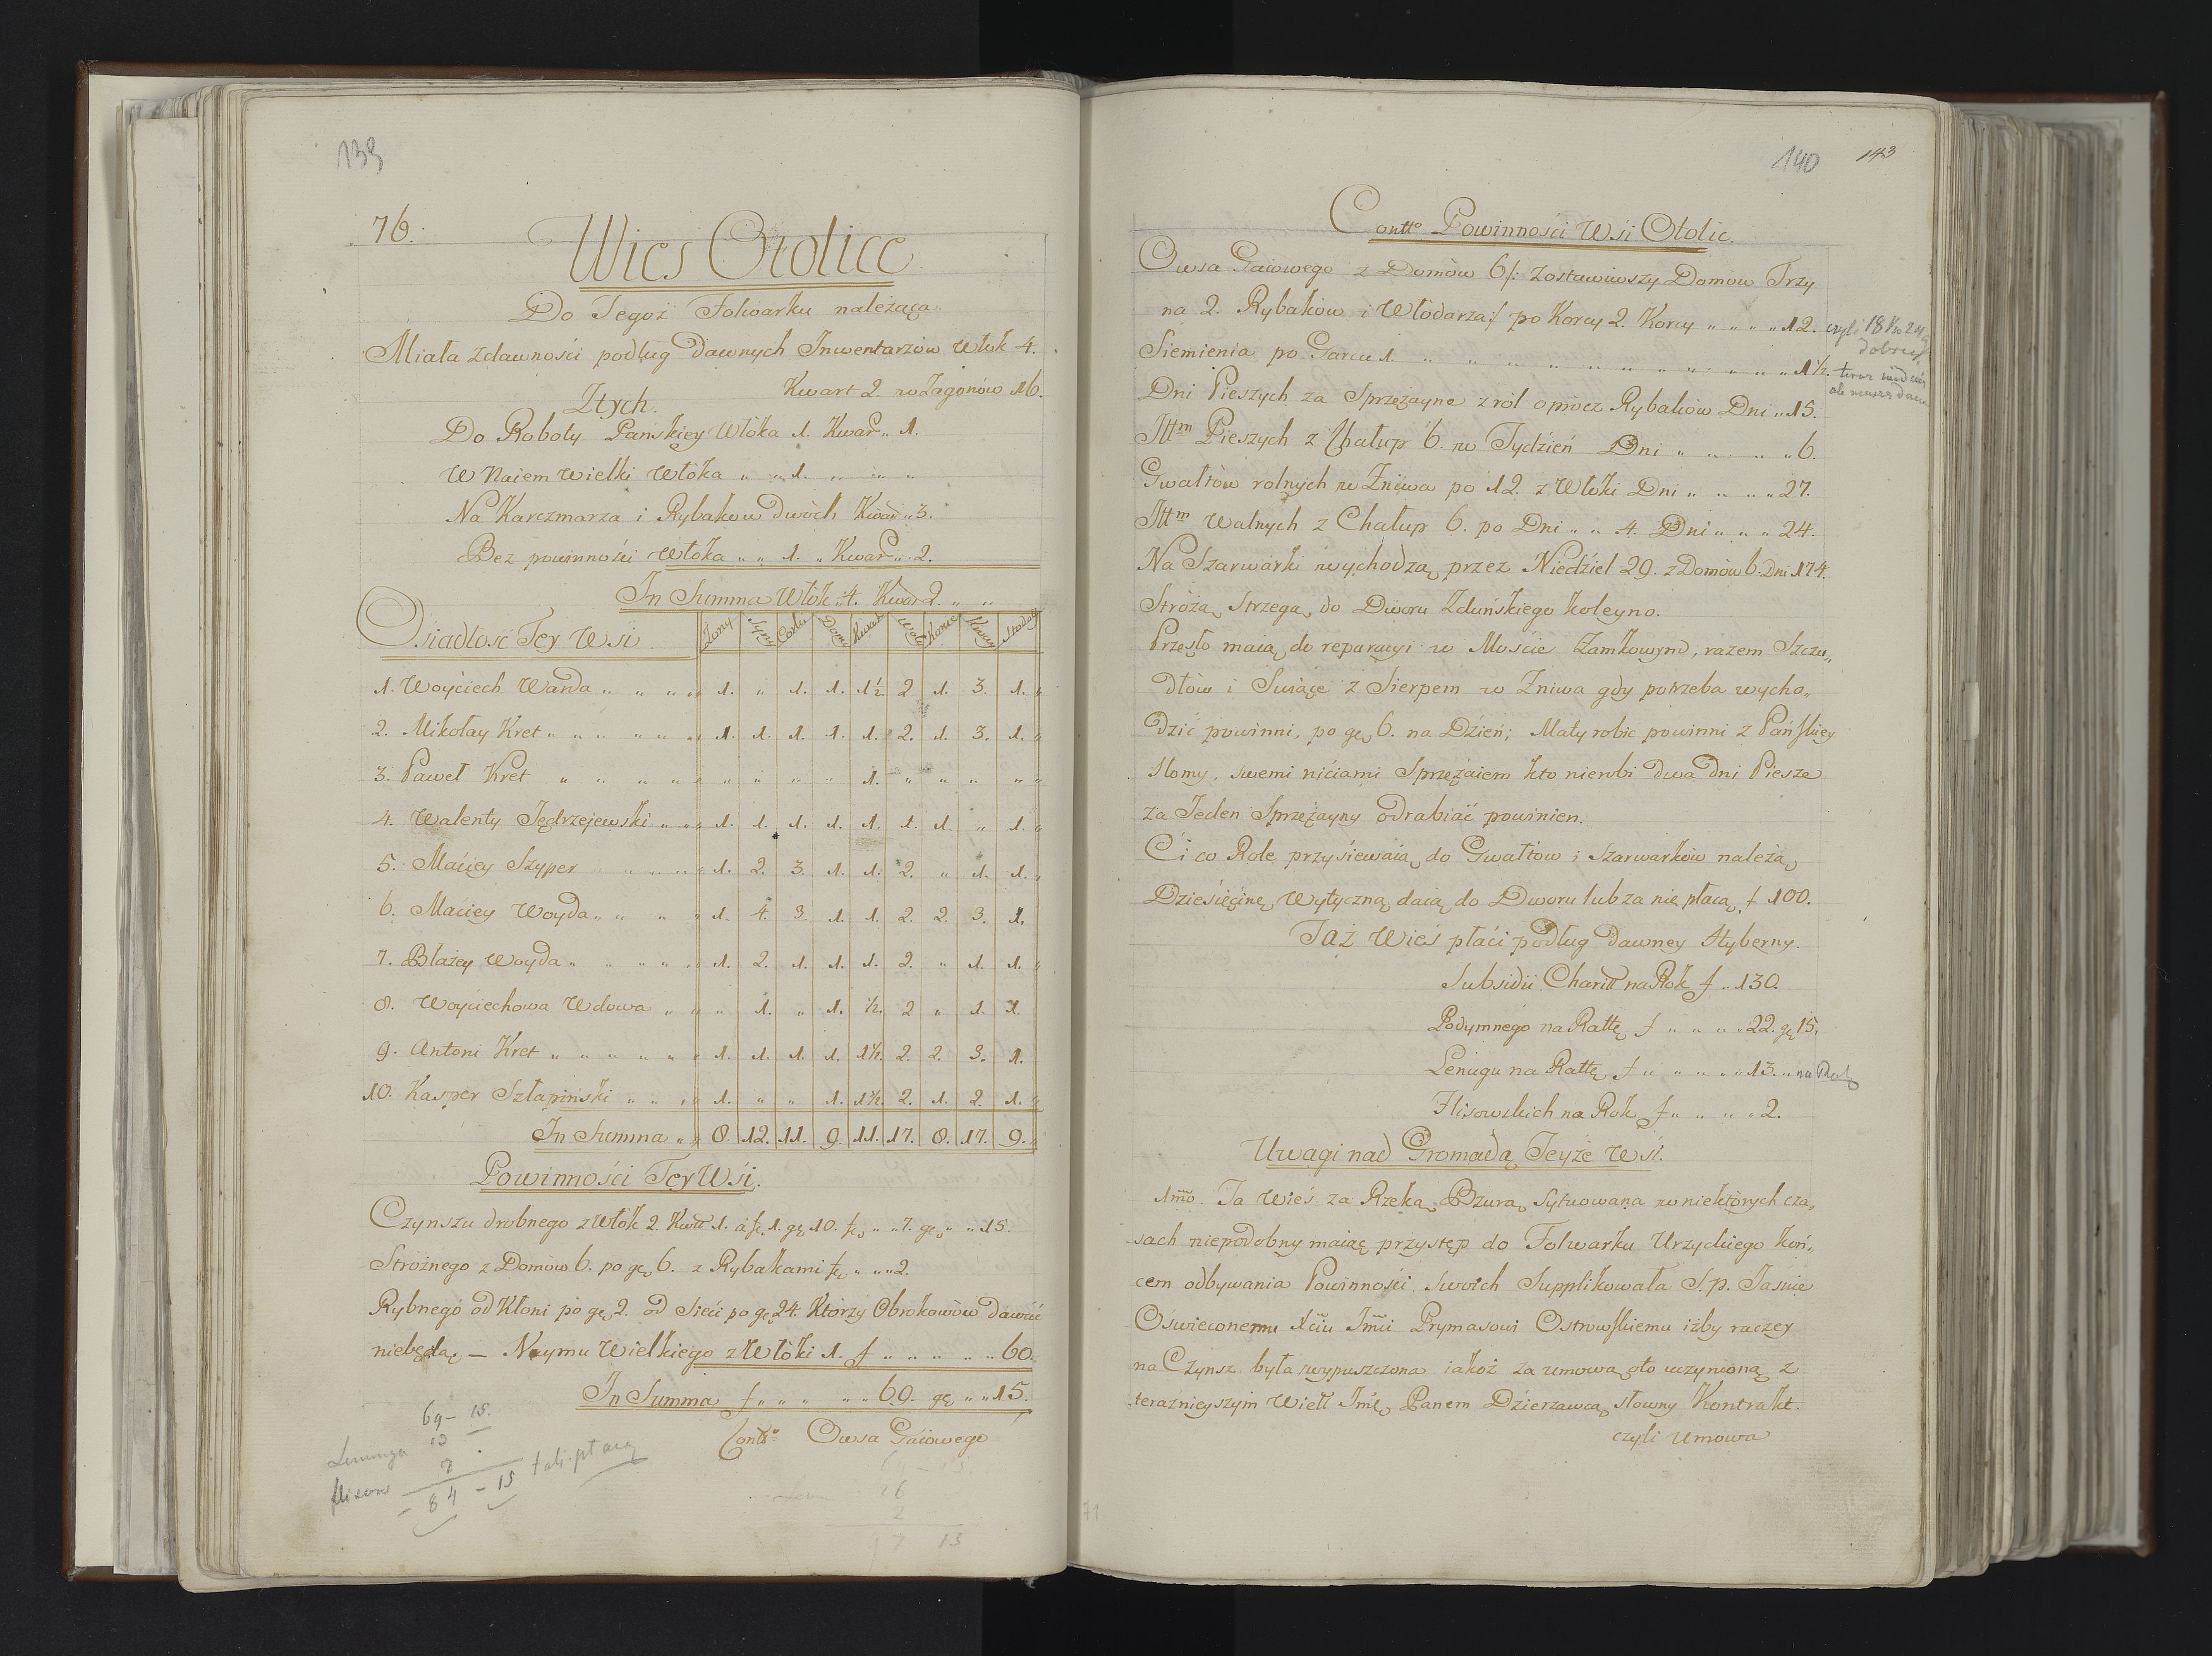 139
76.
Wies Otolice
Do Tegoż Folwarku należąca
Miała zdawności podług Dawnych Inwentarzów Włok 4.
Kwart 2. w Zagonów 16.
Ztych.
Do Roboty Panskiey Włóka 1. Kwar „ 1.
W Naiem wielki Włóka „ „ 1. „ „ „
Na Karczmarza i Rybakow dwóch Kwar „ 3.
Bez powinności Włóka „ „ 1. „ Kwar „ 2.
In Summa Włók „ 4. Kwar 2. „ „
Osiadłość Tey Wsi Zony Syny Corki Domy Kwart Woły Konie Krowy Stodoły
1. Woyciech Warda „ „ „ „ 1. „ 1. 1. 1½ 2 1. 3. 1. „
2. Mikołay Kret „ „ „ „ „ 1. 1. 1. 1. 1. 2. 1. 3. 1. „
3. Paweł Kret „ „ „ „ „ „ „ „ „ 1. „ „ „ „ „
4. Walenty Jędrzejewski „ „ 1. 1. 1. 1. 1. 1. 1. „ 1. „
5. Maciey Szyper „ „ „ „ 1. 2. 3. 1. 1. 2. „ 1. 1. „
6. Maciey Woyda „ „ „ „ 1. 4. 3. 1. 1. 2. 2. 3. 1.
7. Błażey Woyda „ „ „ „ „ 1. 2. 1. 1. 1. 2. „ 1. 1. „
8. Woyciechowa Wdowa „ „ „ 1. „ 1. ½. 2 „ 1. 1.
9. Antoni Kret „ „ „ „ „ „ 1. 1. 1. 1. 1½. 2. 2. 3. 1.
10. Kasper Szłapiński „ „ „ 1. „ „ 1. 1½. 2. 1. 2. 1. „
In Summa „ „ 8. 12. 11. 9. 11. 17. 8. 17. 9. „
Powinności Tey Wśi.
Czynszu drobnego z Włók 2. Kwar 1. á fę 1. gę 10. fę „ „ 7. gę „ „ 15.
Stróżnego z Domów 6. po gę 6. z Rybakami fę „ „ „ 2.
Rybnego od Kłoni po gę 2. od Sieći po gę 24. Którzy Obrokowów dawać
niebędą. — Naymu Wielkiego z Włóki 1. f „ „ „ „ „ 60.
In Summa f „ „ „ „ „ 69. gę „ „ 15.
Contto Owsa Gaiowego
69 – 15.
13
2
– 84 – 15
140 143
Contto Powinności Wsi Otolic.
Owsa Gaiowego z Domów 6/: Zostawiwszy Domow Trzy
na 2. Rybaków i Włodarza:/ po Korcy 2. Korcy „ „ „ „ 12. czyli 18
Siemienia po Garcu 1. „ „ „ „ „ „ „ „ „ „ „ 1½.
Dni Pieszych za Sprzężayne z ról oprócz Rybaków Dni „ 15.
Ittm Pieszych z Chałup 6. w Tydzień Dni „ „ „ „ 6.
Gwałtów rolnych w Żniwa po 12. z Włoki Dni „ „ „ „ 27.
Ittm Walnych z Chałup 6. po Dni „ „ 4. Dni „ „ „ 24.
Na Szarwarki wychódzą przez Niedziel 29. z Domów 6. Dni 174.
Stróża Strzegą do Dworu Zduńskiego koleyno.
Przęsło maią do reparacyi w Mośćie Zamkowym, razem Szczu„
dłów i Swiące z Sierpem w Żniwa gdy potrzeba wycho„
dzić powinni, po gę 6. na Dzień; Maty robic powinni z Pańskiey
słomy, swemi nićiami Sprzężaiem kto nierobi dwa dni Piesze
za Jeden Sprzężayny odrabiać powinien.
Ci co Role przysiewaią do Gwałtow i Szarwarków należą
Dziesięćinę Wytyczną daią do Dworu lub za nię płacą f 100.
Taż Wieś płaći podług dawney Hyberny.
Subsidii Charitt na Rok f „ 130.
Podymnego na Rattę f „ „ „ „ 22. gę 15.
Lenugu na Rattę f „ „ „ „ 13. „ na Ratę
Flisowskich na Rok f „ „ „ „ 2.
Uwagi nad Gromadą Teyże Wśi.
1mo. Ta Wieś za Rzeką Bzurą sytuowana w niektórych cza„
sach niepodobny maiąc przystęp do Folwarku Urzyckiego koń„
cem odbywania Powinności swoich Supplikowała S. p. Jaśnie
Oświeconemu Xciu Jmći Prymasowi Ostrowskiemu iżby raczey
na Czynsz była wypuszczona iakoż za umową oto uczynioną z
teraźnieyszym Wiel. Jmć Panem Dzierzawcą słowny Kontrakt
czyli Umowa
71